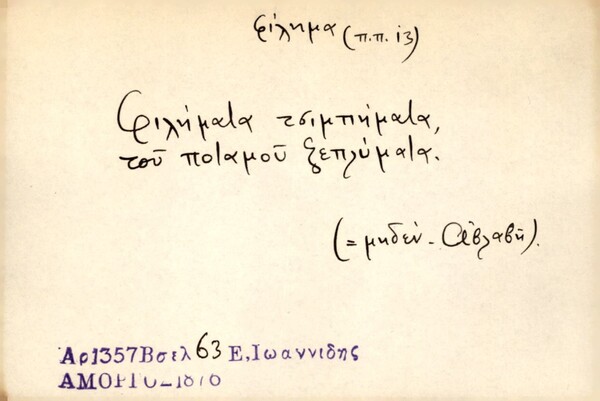 φίλημα (π.π. ιз)
Φιλήματα τσιμπήματα,
τοῦ ποταμοῦ ξεπλύματα.
(= μηδέν - ἀβλαβῆ).
Αρ1357Βσελ 63 Ε,Ιωαννιδης
ΑΜΟΡΓΟΣ1876